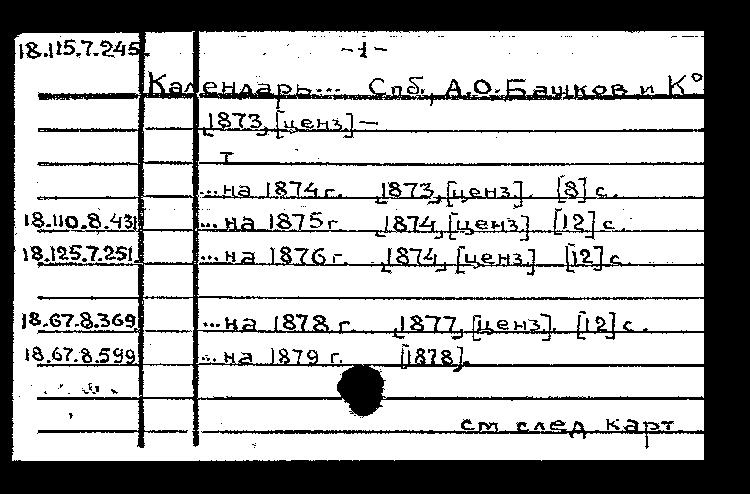 18.115.7.245. -1-
Календарь... Спб., А.О.Башков и К°
1873, [ценз.] —
т
...на 1874 г. 1873, [ценз]. [8] с.
18.110.8.431 ...на 1875 г. 1874, [ценз] [12] с.
18.125.7.251. ...на 1876 г. 1874, [ценз] [12] с.
18.67.8.369 ...на 1878 г. 1877, [ценз]. [12] с.
18.67.8.599 ...на 1879 г. [1878].
см след карт